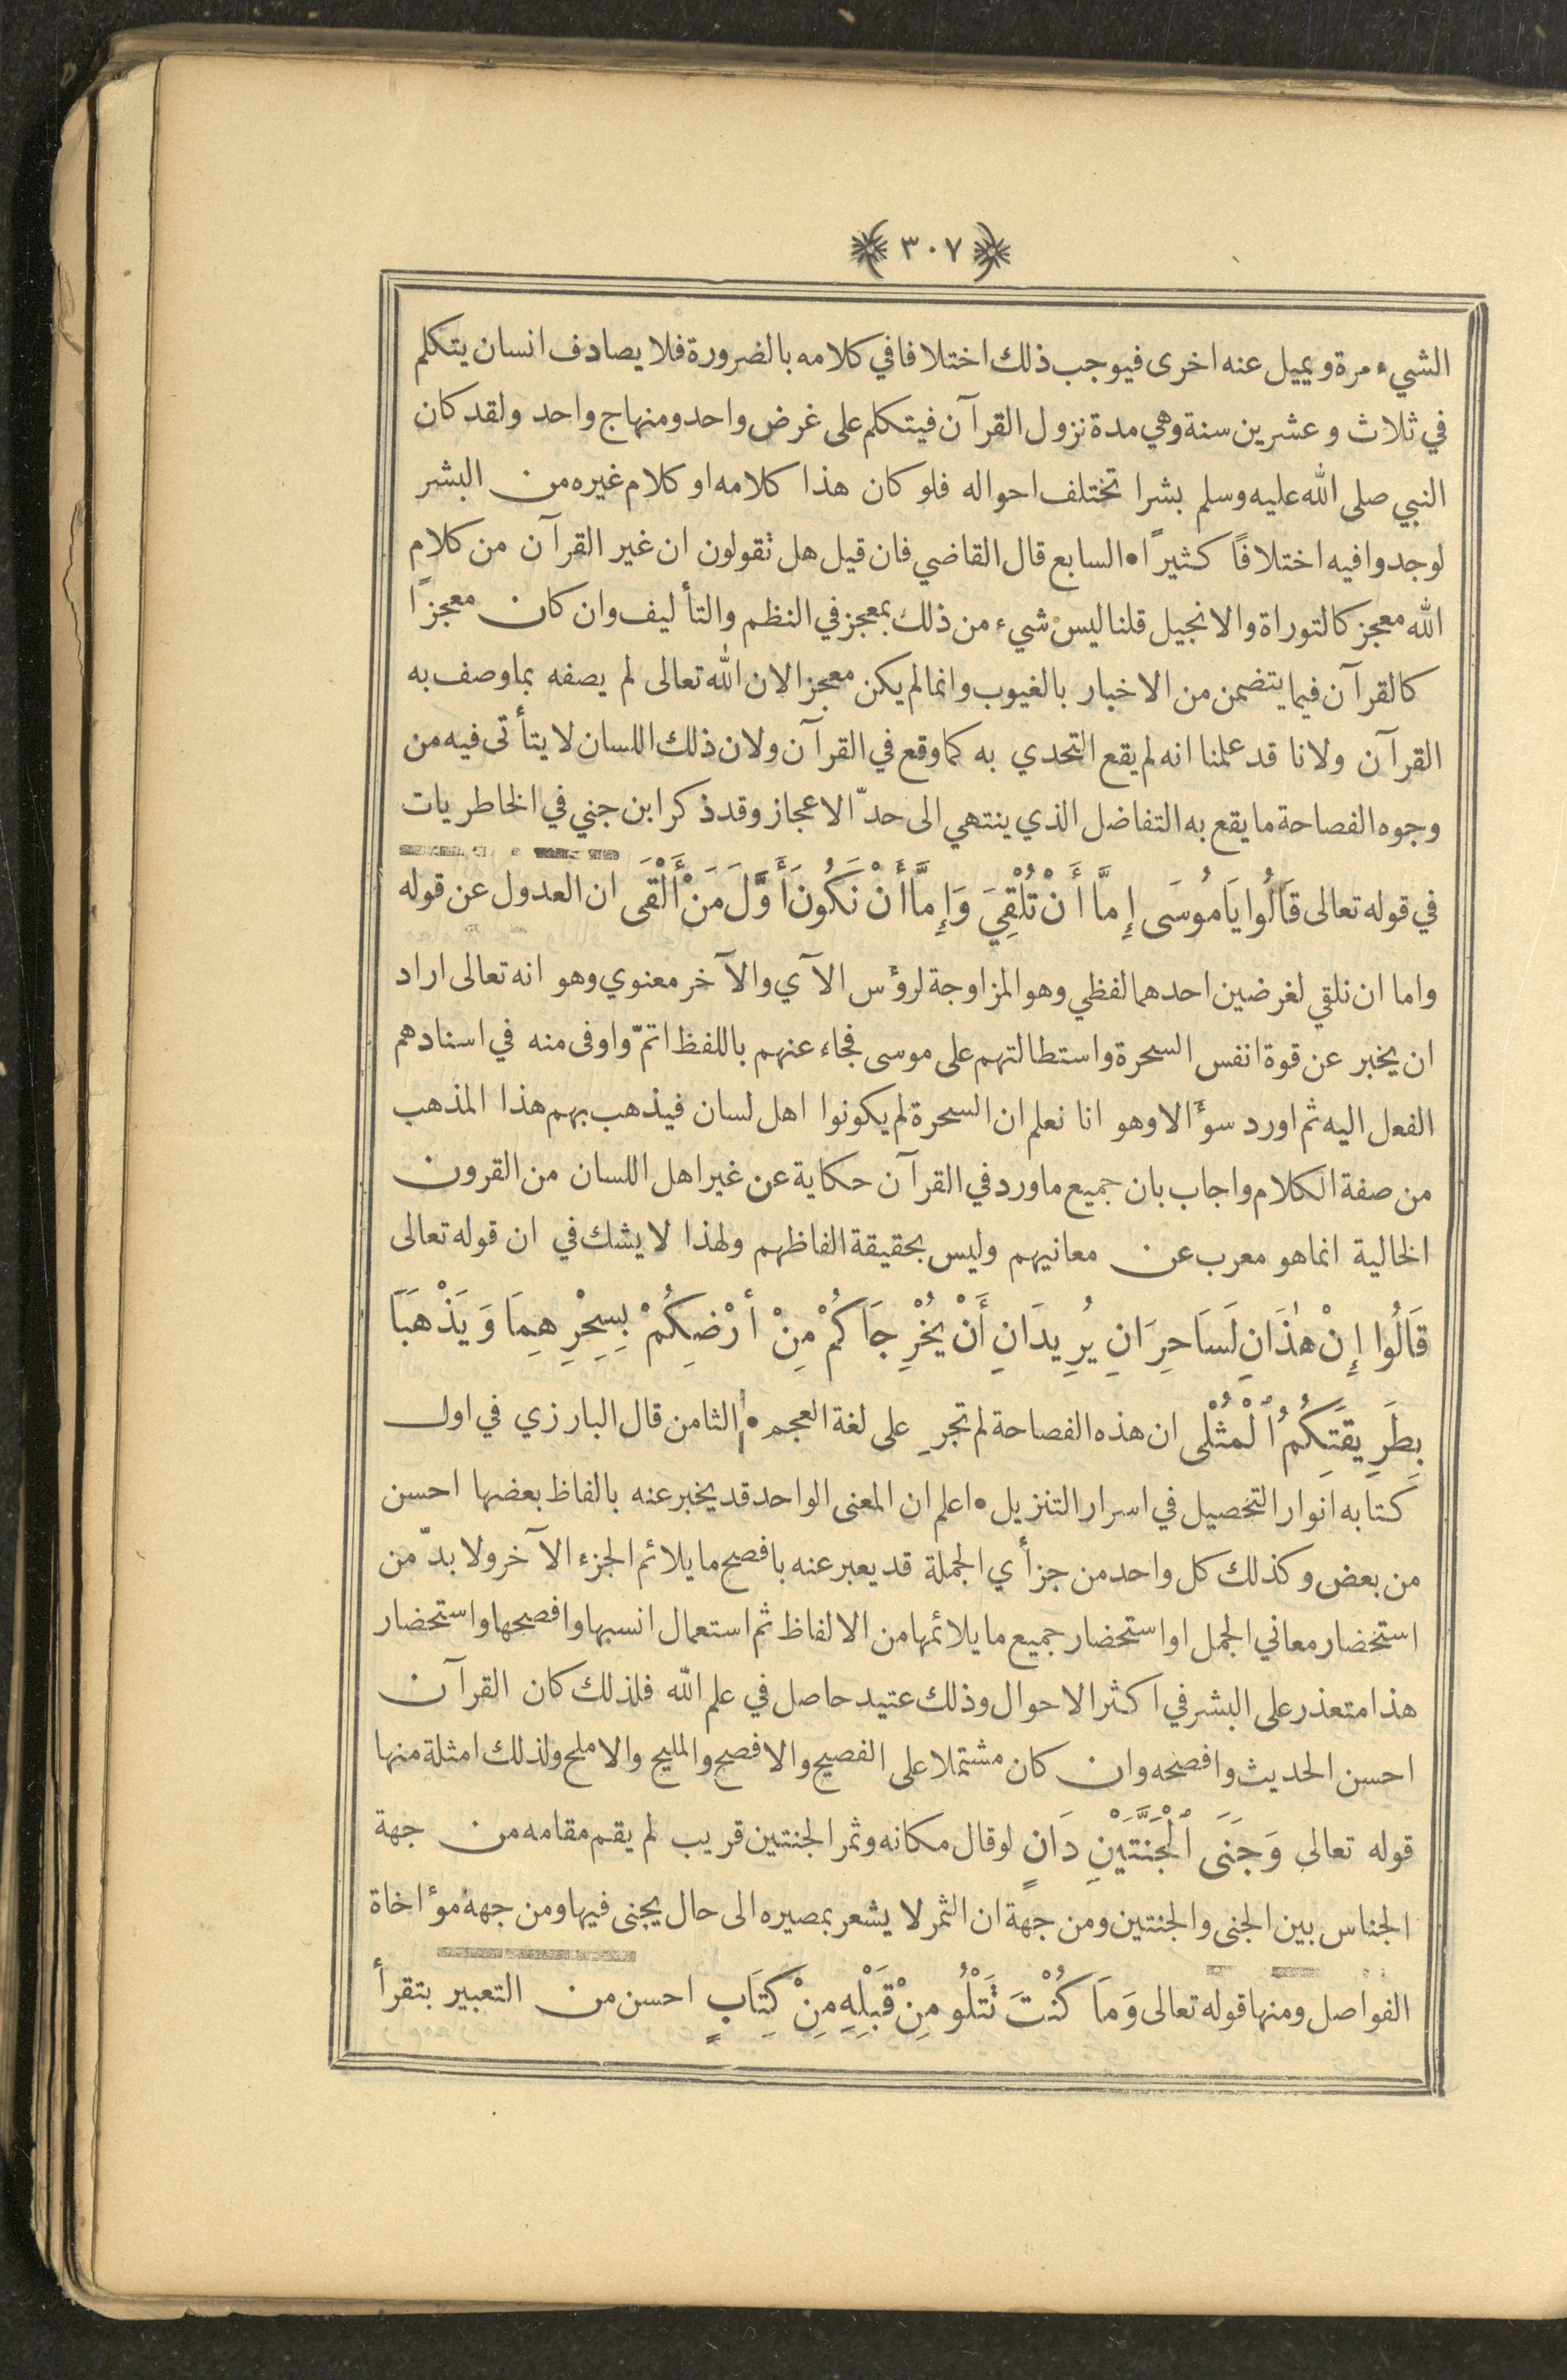 ٣٠٧
الشيء مرة ويميل عنه اخرى فيوجب ذلك اختلافا في كلامه بالضرورة فلا يصادف انسان يتكلم
في ثلاث وعشرين سنة وهي مدة نزول القرآن فيتكلم على غرض واحد ومنهاج واحد ولقد كان
النبي صلى الله عليه وسلم بشرا تختلف احواله فلو كان هذا كلامه او كلام غيره من البشر
لوجدوا فيه اختلافًا كثيرًا • السابع قال القاضي فان قيل هل تقولون ان غير القرآن من كلام
الله معجز كالتوراة والانجيل قلنا ليس شيء من ذلك بمعجز في النظم والتأليف وان كان معجزًا
كالقرآن فيما يتضمن من الاخبار بالغيوب وانما لم يكن معجزا لان الله تعالى لم يصفه بما وصف به
القرآن ولانا قد علمنا انه لم يقع التحدي به كما وقع في القرآن ولان ذلك اللسان لا يتأتى فيه من
وجوه الفصاحة ما يقع به التفاضل الذي ينتهي الى حدّ الاعجاز وقد ذكر ابن جني في الخاطريات
في قوله تعالى قَالُوا يَا مُوسَى إِمَّا أَنْ تُلْقِيَ وَإِمَّا أَنْ نَكُونَ أَوَّلَ مَنْ أَلْقَى ان العدول عن قوله
واما ان نلقي لغرضين احدهما لفظي وهو المزاوجة لرؤس الآي والآخر معنوي وهو انه تعالى اراد
ان يخبر عن قوة انفس السحرة واستطالتهم على موسى فجاء عنهم باللفظ اتمّ واوفى منه في اسنادهم
الفعل اليه ثم اورد سؤالا وهو انا نعلم ان السحرة لم يكونوا اهل لسان فيذهب بهم هذا المذهب
من صفة الكلام واجاب بان جميع ما ورد في القرآن حكاية عن غير اهل اللسان من القرون
الخالية انما هو معرب عن معانيهم وليس بحقيقة الفاظهم ولهذا لا يشك في ان قوله تعالى
قَالُوا إِنْ هٰذَانِ لَسَاحِرَانِ يُرِيدَانِ أَنْ يُخْرِجَاكُمْ مِنْ أَرْضِكُمْ بِسِحْرِهِمَا وَيَذْهَبَا
بِطَرِيقَتِكُمُ ٱلْمُثْلَى ان هذه الفصاحة لم تجرِ على لغة العجم • الثامن قال البارزي في اول
كتابه انوار التحصيل في اسرار التنزيل • اعلم ان المعنى الواحد قد يخبر عنه بالفاظ بعضها احسن
من بعض وكذلك كل واحد من جزأي الجملة قد يعبر عنه بافصح ما يلائم الجزء الآخر ولا بدّ من
استحضار معاني الجمل او استحضار جميع ما يلائمها من الالفاظ ثم استعمال انسبها وافصحها واستحضار
هذا متعذر على البشر في اكثر الاحوال وذلك عتيد حاصل في علم الله فلذلك كان القرآن
احسن الحديث وافصحه وان كان مشتملا على الفصيح والافصح والمليح والاملح ولذلك امثلة منها
قوله تعالى وَجَنَى ٱلْجَنَّتَيْنِ دَانٍ لو قال مكانه وثمر الجنتين قريب لم يقم مقامه من جهة
الجناس بين الجنى والجنتين ومن جهة ان الثمر لا يشعر بمصيره الى حال يجنى فيها ومن جهة مؤاخاة
الفواصل ومنها قوله تعالى وَمَا كُنْتَ تَتْلُو مِنْ قَبْلِهِ مِنْ كِتَابٍ احسن من التعبير بتقرأ